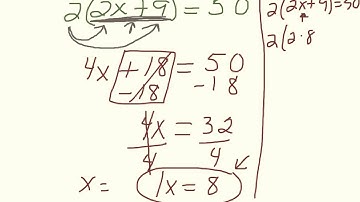 2(2x+9)=50
4x+18=50
-18 -18
4x=32
4 4
x= 1x=8
2(2x+9)=50
2(2·8